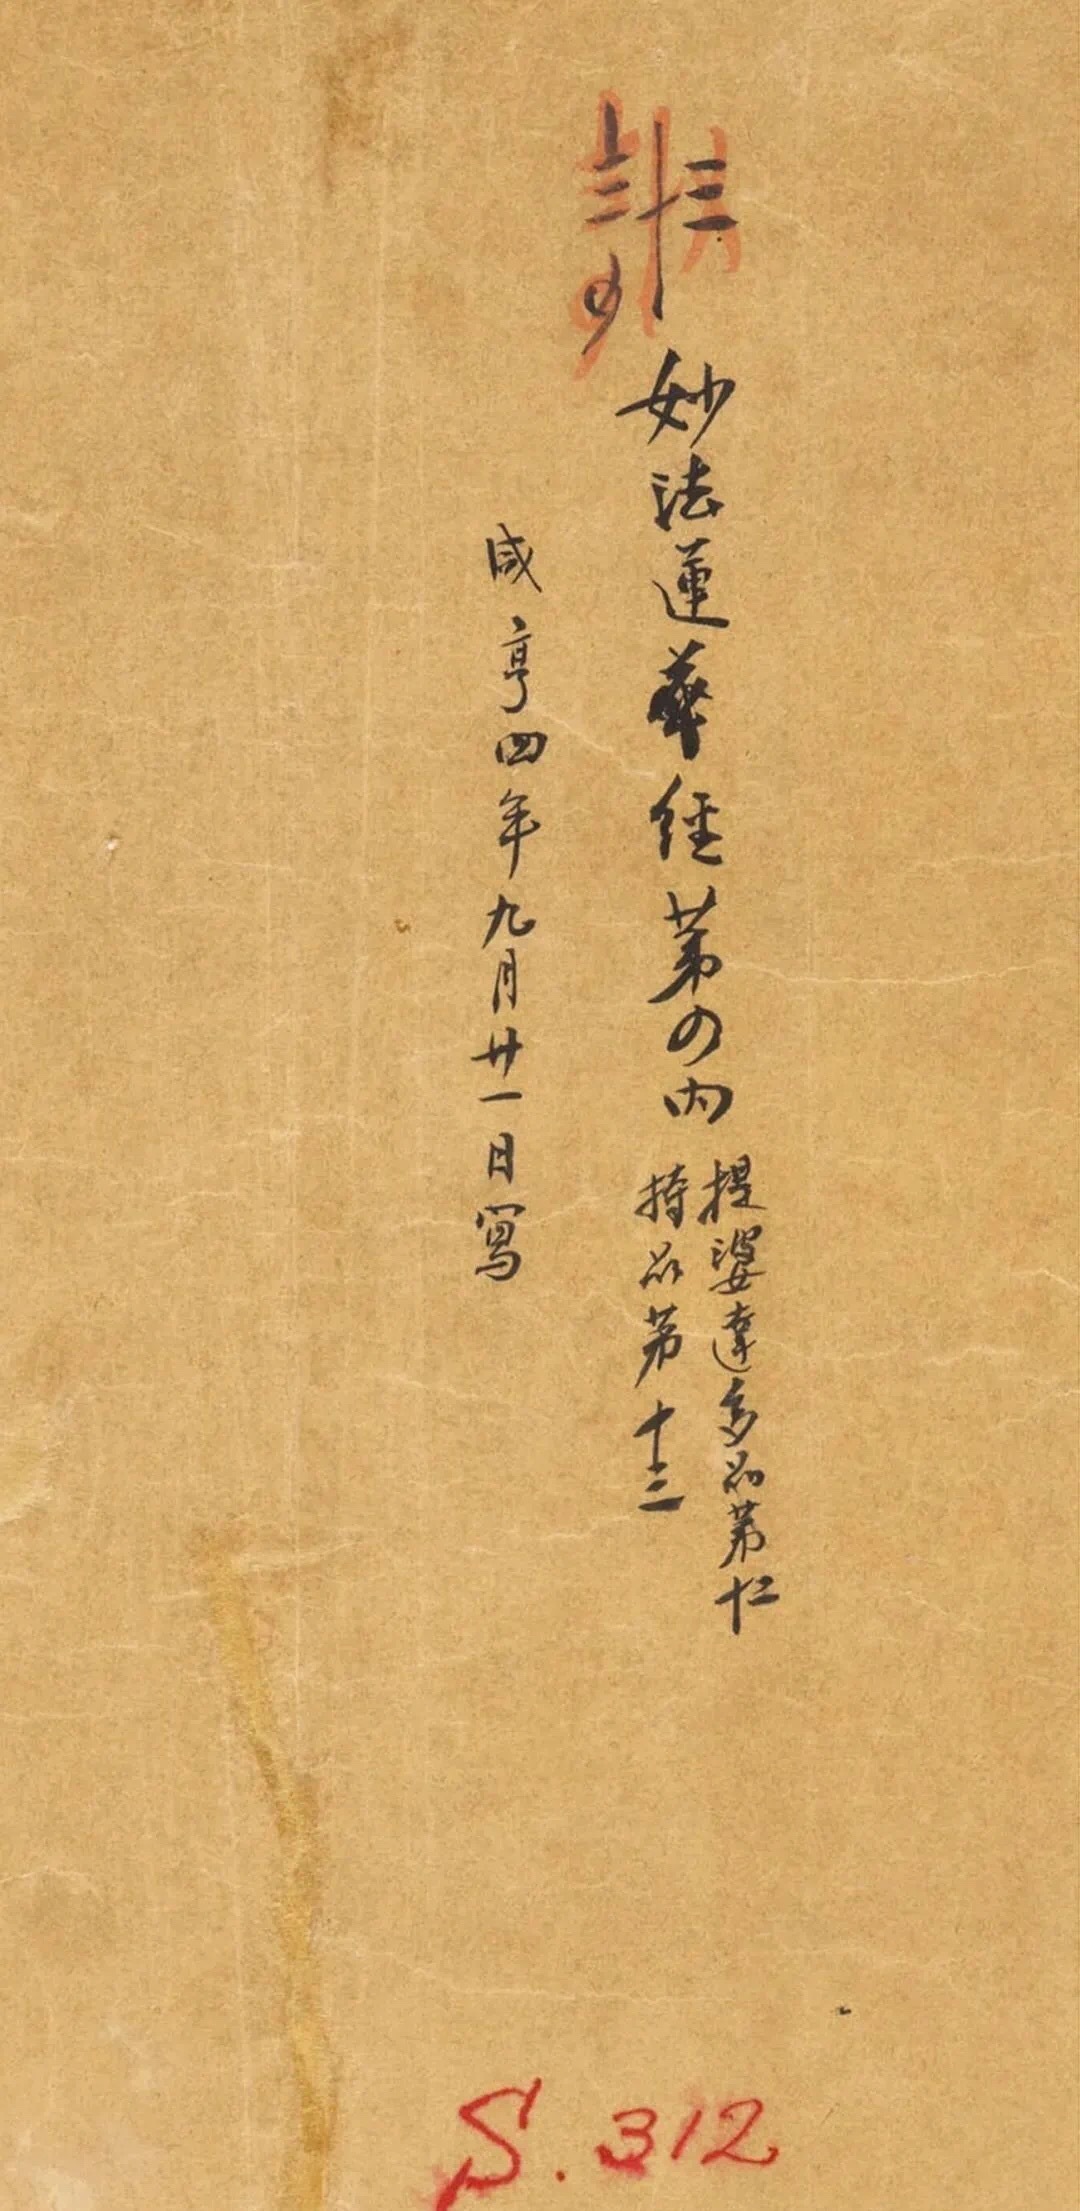 妙法蓮華經第四内
提婆達多品第十二
持品第十三
咸亨四年九月廿一日寫
S. 312